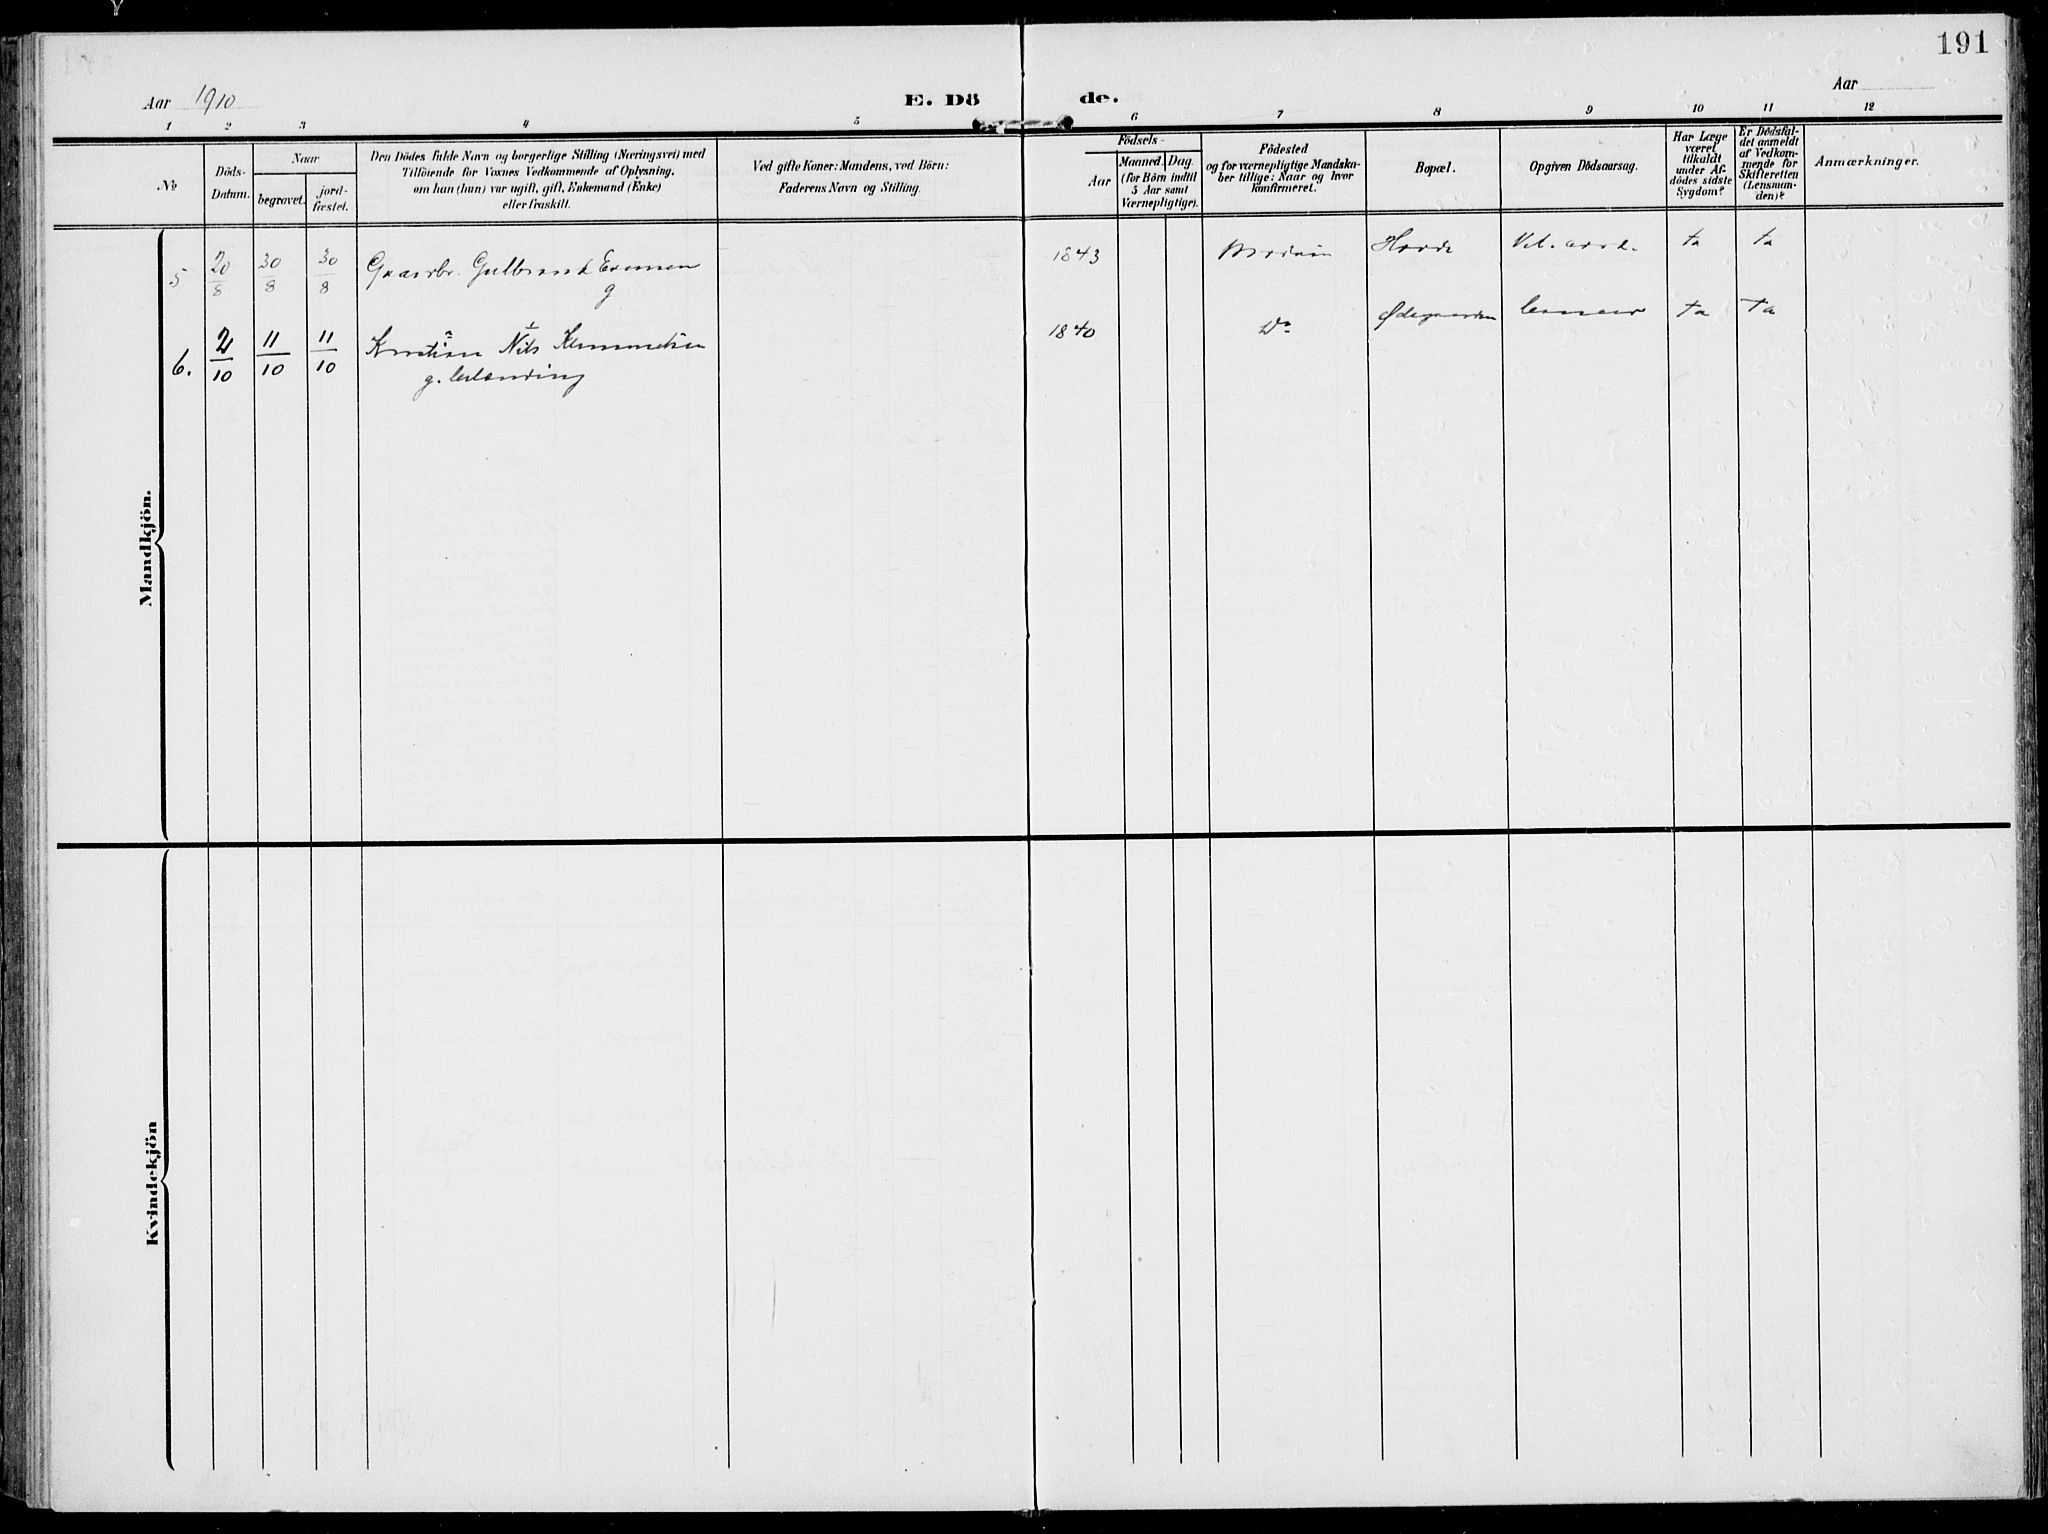 191
Aar 1910
E. Dö de.
Aar
1 2 3 4 5 6 7 8 9 10 11 12
No
Döds-
Datum.
Naar
begravet.
jord-
fæstet.
Den Dödes fulde Navn og borgerlige Stilling (Næringsvei) med
Tilföiende for Voxnes Vedkommende af Oplysning,
om han (hun) var ugift, gift, Enkemand (Enke)
eller fraskilt.
Ved gifte Koner: Mandens, ved Börn:
Faderens Navn og Stilling.
Födsels-
Aar
Maaned.
Dag.
(for Börn indtil
5 Aar samt
Værnepligtige).
Födested
og for værnepligtige Mandska-
ber tillige: Naar og hvor
konfirmeret.
Bopæl.
Opgiven Dödsaarsag.
Har Læge
været
tilkaldt
under Af-
dödes sidste
Sygdom?
Er Dödsfal-
det anmeldt
af Vedkom-
mende for
Skifteretten
(Lensman-
den)?
Anmærkninger.
Mandkjön.
5 20/8 30/8 30/8 Gaardbr. Gulbrand Evensen 1843 Hovde ta ta
g
6. 2/10 11/10 11/10 Kristian Nils 1840 Do Ødegaarden ta ta
g.
Kvindekjön